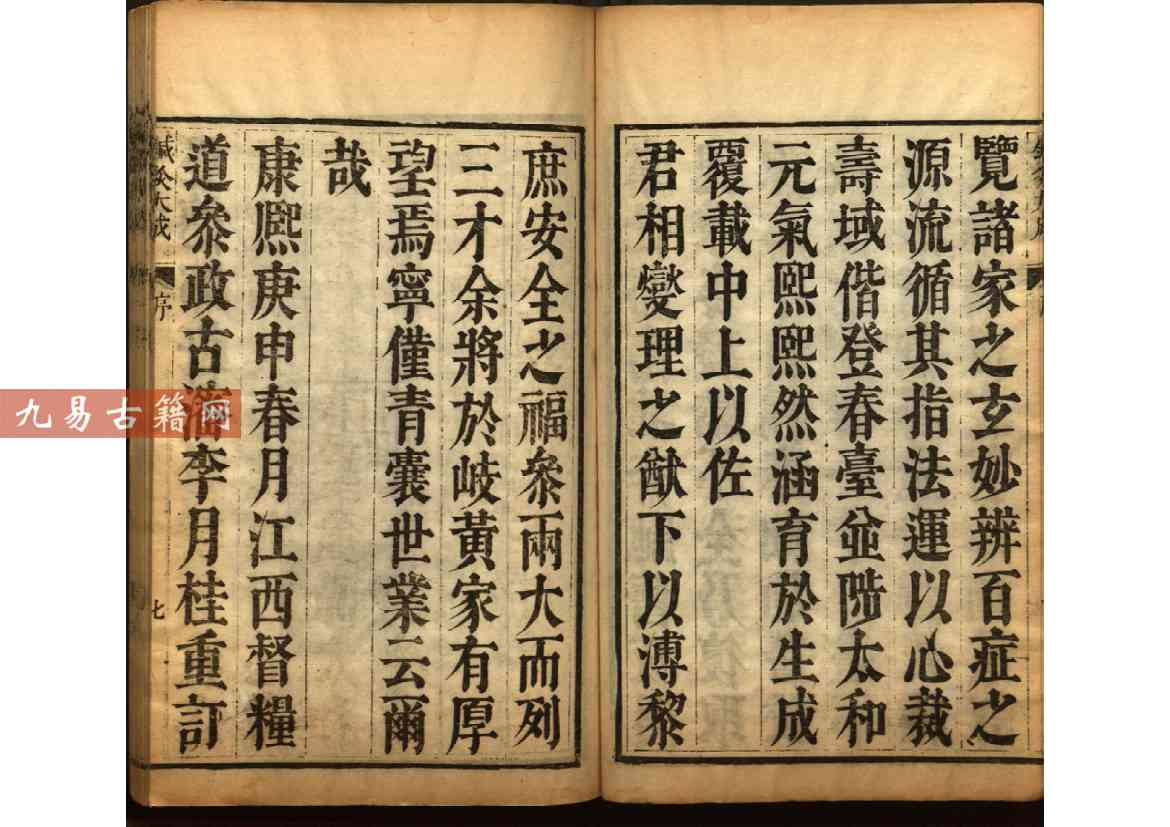 覽諸家之玄妙辨百症之
源流循其指法運以心裁
壽域偕登春臺並階太和
元氣熙熙然涵育於生成
覆載中上以佐
君相燮理之猷下以溥黎
庶安全之福叅兩大而列
三才余將於岐黃家有厚
望焉寧僅青囊世業云爾
哉
康熙庚申春月江西督糧
道叅政古李月桂重訂
鍼灸大成
序
七
九易古籍网